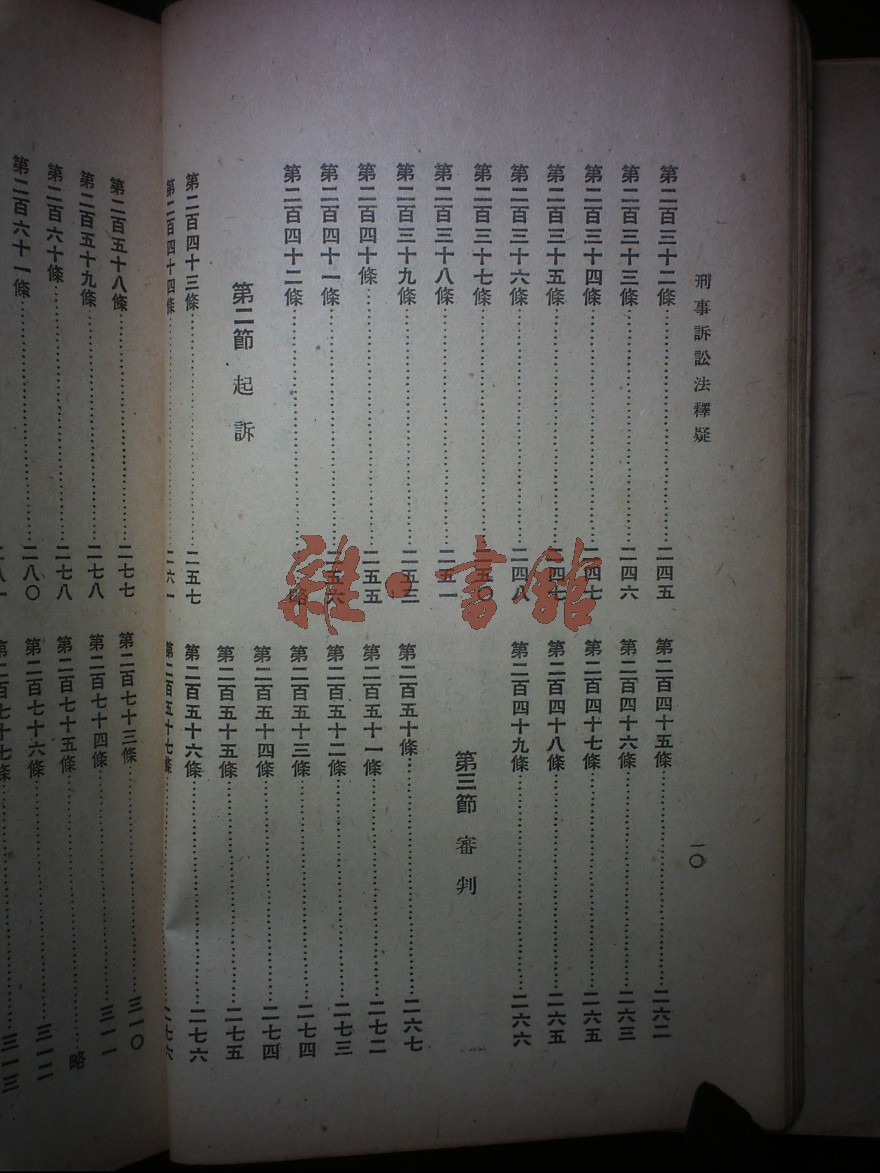 刑事訴訟法釋疑
一〇
第二百三十二條……二四五
第二百三十三條……二四六
第二百三十四條……二四七
第二百三十五條……二四七
第二百三十六條……二四八
第二百三十七條……二五〇
第二百三十八條……二五一
第二百三十九條……二五三
第二百四十條……二五五
第二百四十一條……二五六
第二百四十二條……略
第二節 起訴
第二百四十三條……二五七
第二百四十四條……二六一
第二百四十五條……二六二
第二百四十六條……二六三
第二百四十七條……二六五
第二百四十八條……二六五
第二百四十九條……二六六
第三節 審判
第二百五十條……二六七
第二百五十一條……二七二
第二百五十二條……二七三
第二百五十三條……二七四
第二百五十四條……二七四
第二百五十五條……二七五
第二百五十六條……二七六
第二百五十七條……二七六
第二百五十八條……二七七
第二百五十九條……二七八
第二百六十條……二七八
第二百六十一條……二八〇
二八一
第二百七十三條……三一〇
第二百七十四條……三一一
第二百七十五條……略
第二百七十六條……三一二
第二百七十七條……三一三
雜·書館